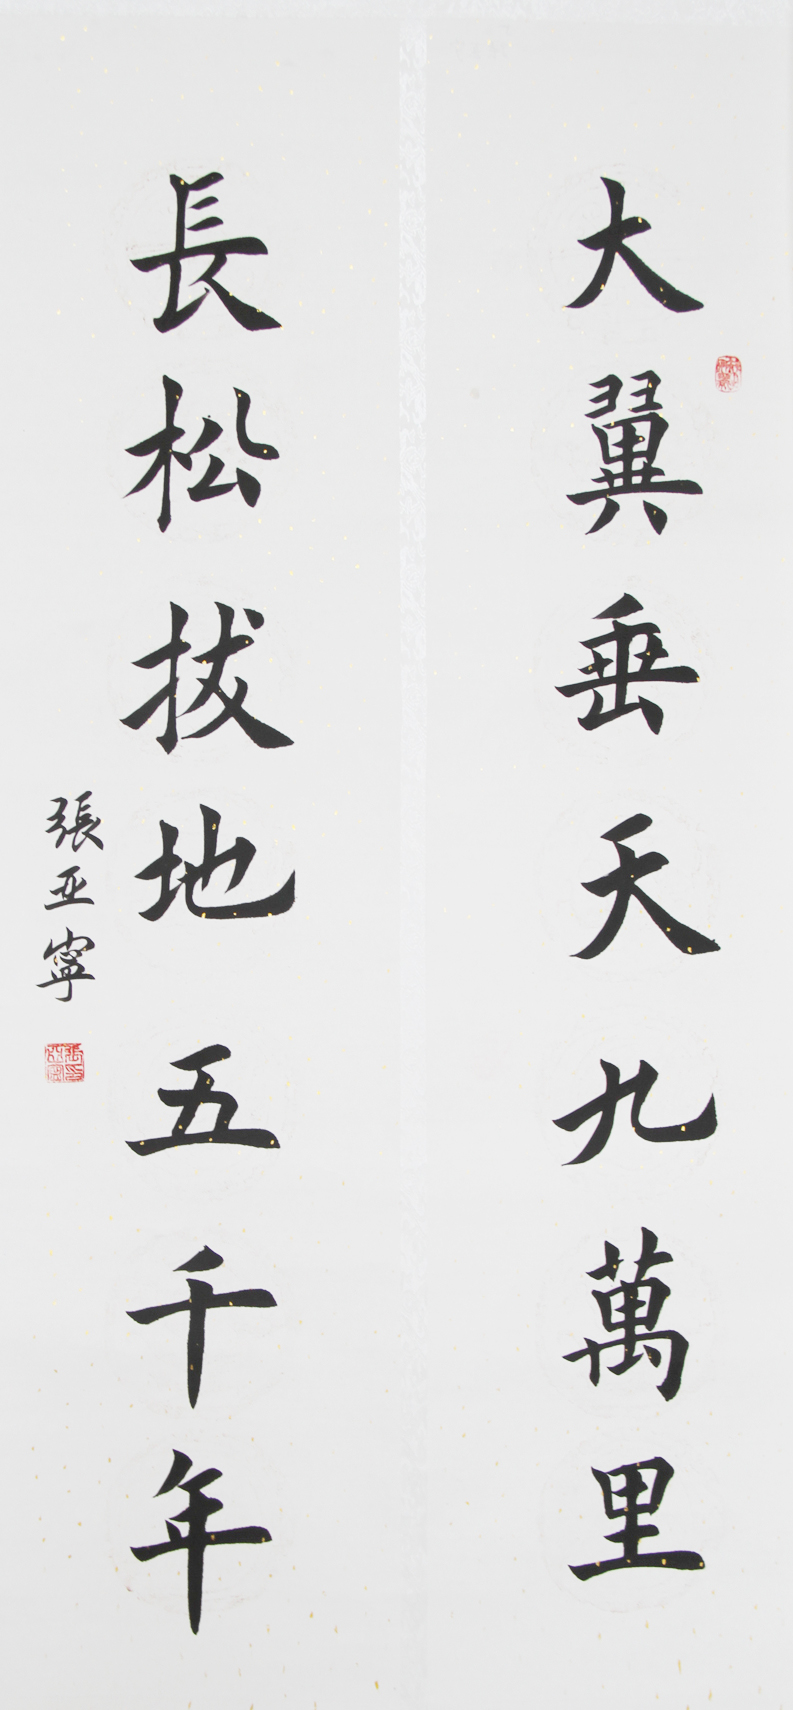 大翼垂天九萬里
長松拔地五千年
張亚寧